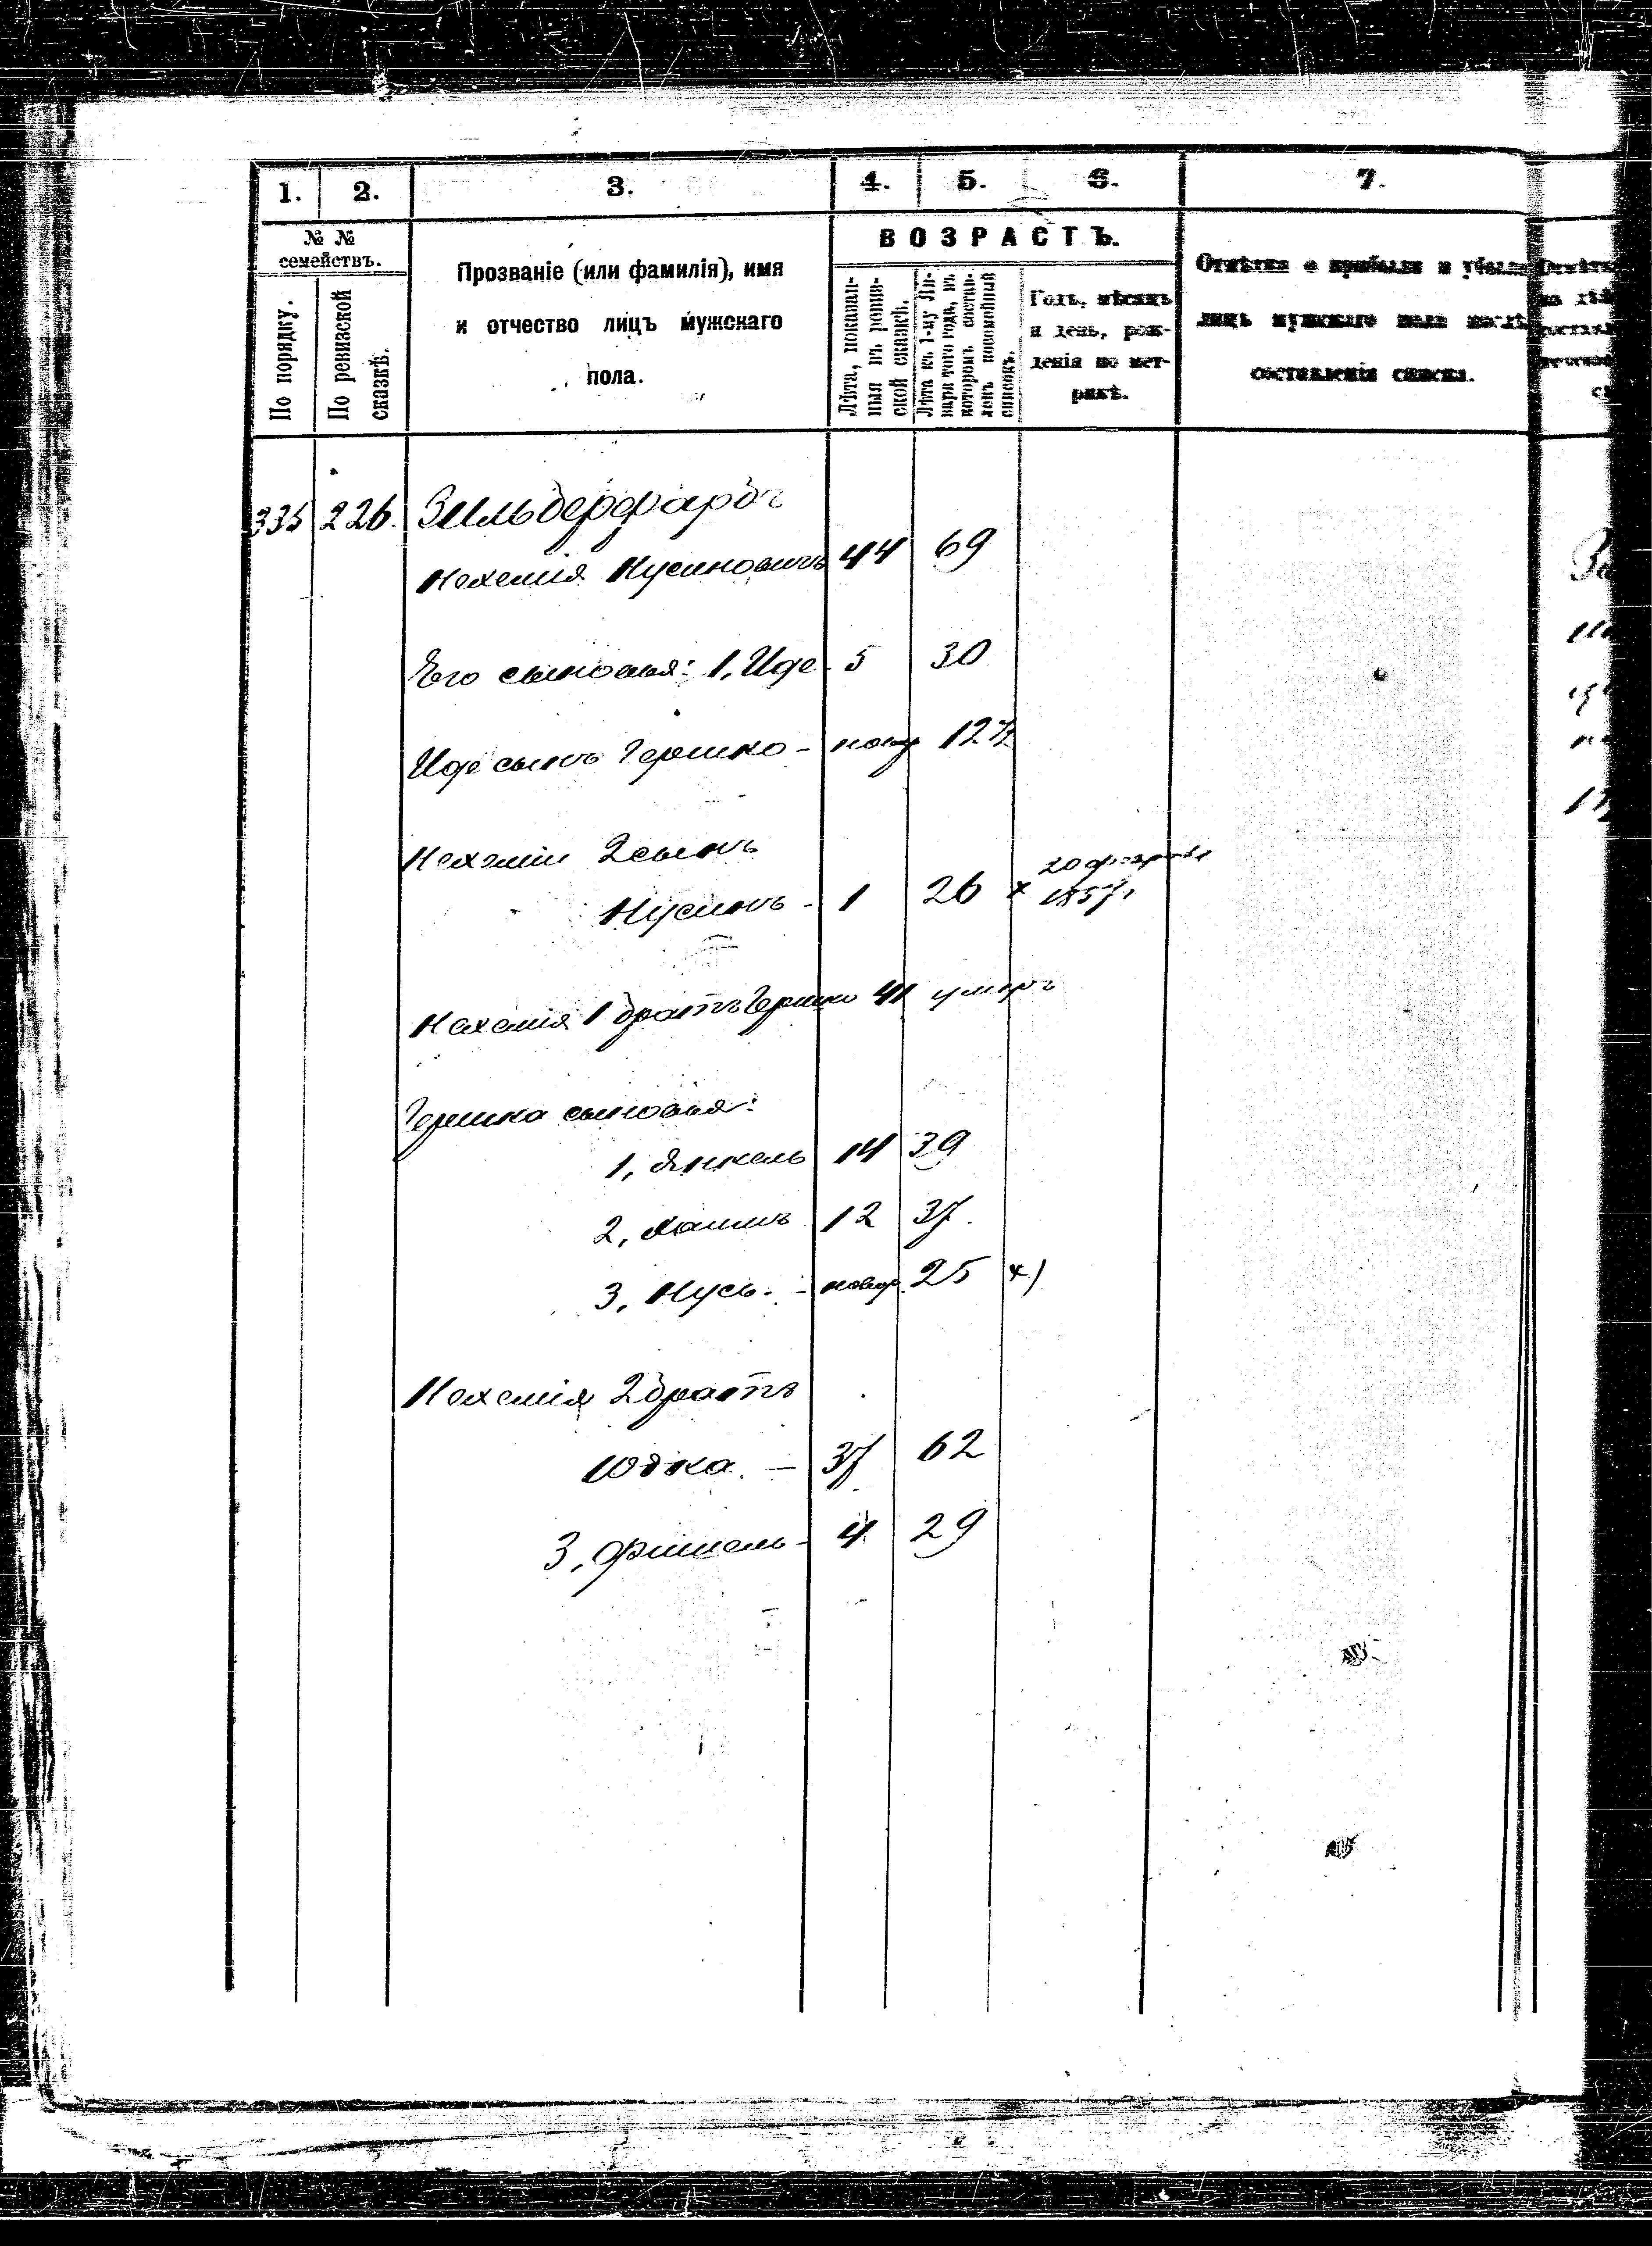 1. 2. 3. 4. 5. 6. 7.
№ №
семействъ.
По порядку.
По ревизской
сказкѣ.
Прозваніе (или фамилія), имя
и отчество лицъ мужскаго
пола.
ВОЗРАСТЪ.
Лѣта, показан-
ныя въ ревиз-
ской сказкѣ.
Лѣта къ 1-му Ян-
варя того года, въ
которомъ состав-
ленъ посемейный
списокъ.
Годъ, мѣсяцъ
и день, рож-
денія по мет-
рикѣ.
Отмѣтка о прибыли и убыли
лицъ мужскаго пола послѣ
составленія списка.
335 226. Зильберфарбъ
Нехемія Нусиновичъ 44 69
Его сыновья: 1, Иде - 5 30
Иде сынъ Гершко - 12½
Нехеміи 2 сынъ
Нусинъ - 1 26 х 20 февраля
1857 г
Нехемія 1 братъ Гершко 41 умеръ
Гершка сыновья:
1, Янкель 14 39
2, Хаимъ 12 37.
3, Нусь. - новор. 25 х)
Нехемія 2 братъ
Юдка. — 37 62
3, Фишель - 4 29